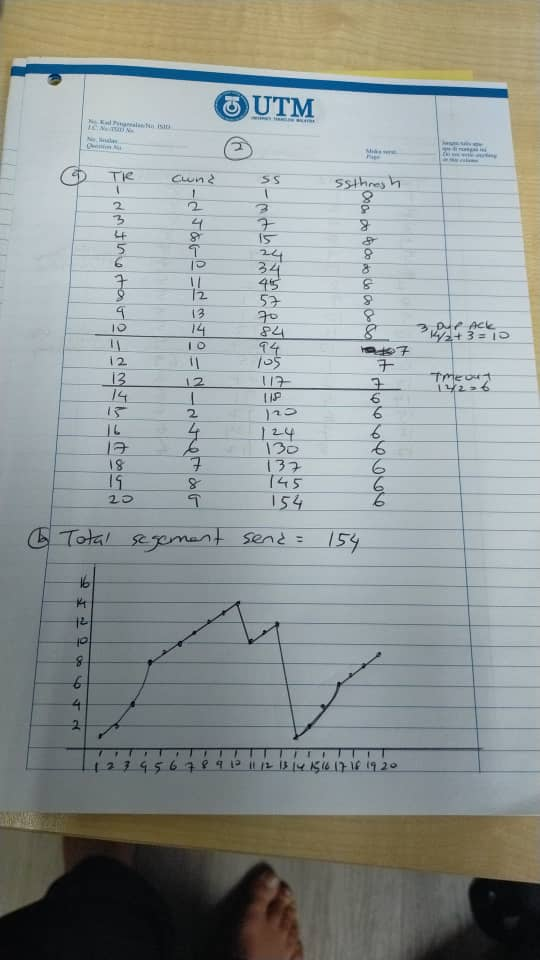 UTM
UNIVERSITI TEKNOLOGI MALAYSIA
No. Kad Pengenalan/No. ISID
I.C. No./ISID No.
No. Soalan
Question No.
2
Muka surat
Page
Jangan tulis apa-
apa di ruangan ini
Do not write anything
in this column
a TR cwnd SS ssthresh
1 1 1 8
2 2 3 8
3 4 7 8
4 8 15 8
5 9 24 8
6 10 34 8
7 11 45 8
8 12 57 8
9 13 70 8
10 14 84 8 3 Dup Ack
14/2 + 3 = 10
11 10 94 7
12 11 105 7
13 12 117 7 Timeout
12/2 = 6
14 1 118 6
15 2 120 6
16 4 124 6
17 6 130 6
18 7 137 6
19 8 145 6
20 9 154 6
b Total segement send = 154
16
14
12
10
8
6
4
2
1 2 3 4 5 6 7 8 9 10 11 12 13 14 15 16 17 18 19 20